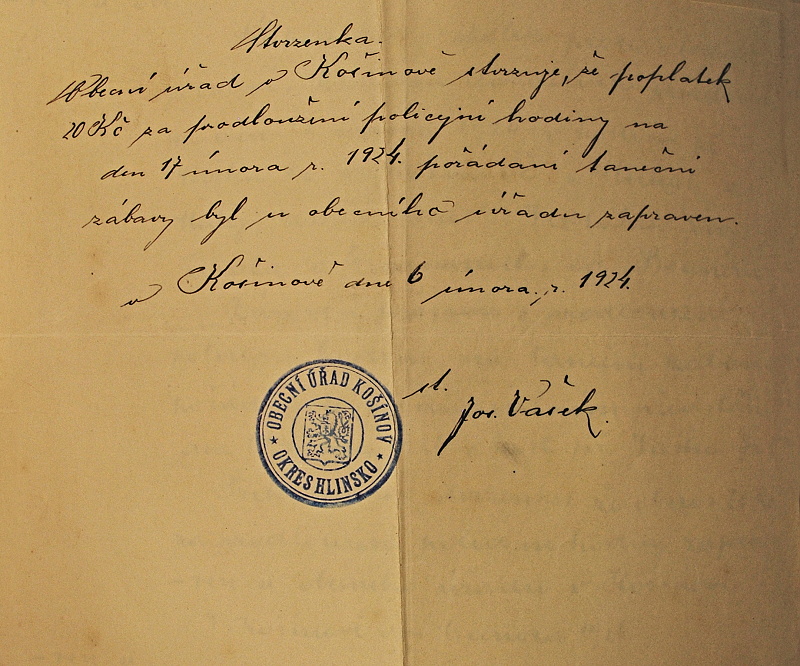 Stvrzenka.
Obecní úřad v Košinově stvrzuje, že poplatek
20 Kč za prodloužení policejní hodiny na
den 17 února r. 1924. pořádaní taneční
zábavy byl u obecního úřadu zapraven.
v Košinově dne 6 února r. 1924.
st.
Jos. Vašek.
OBECNÍ ÚŘAD KOŠÍNOV
★ OKRES HLINSKO ★